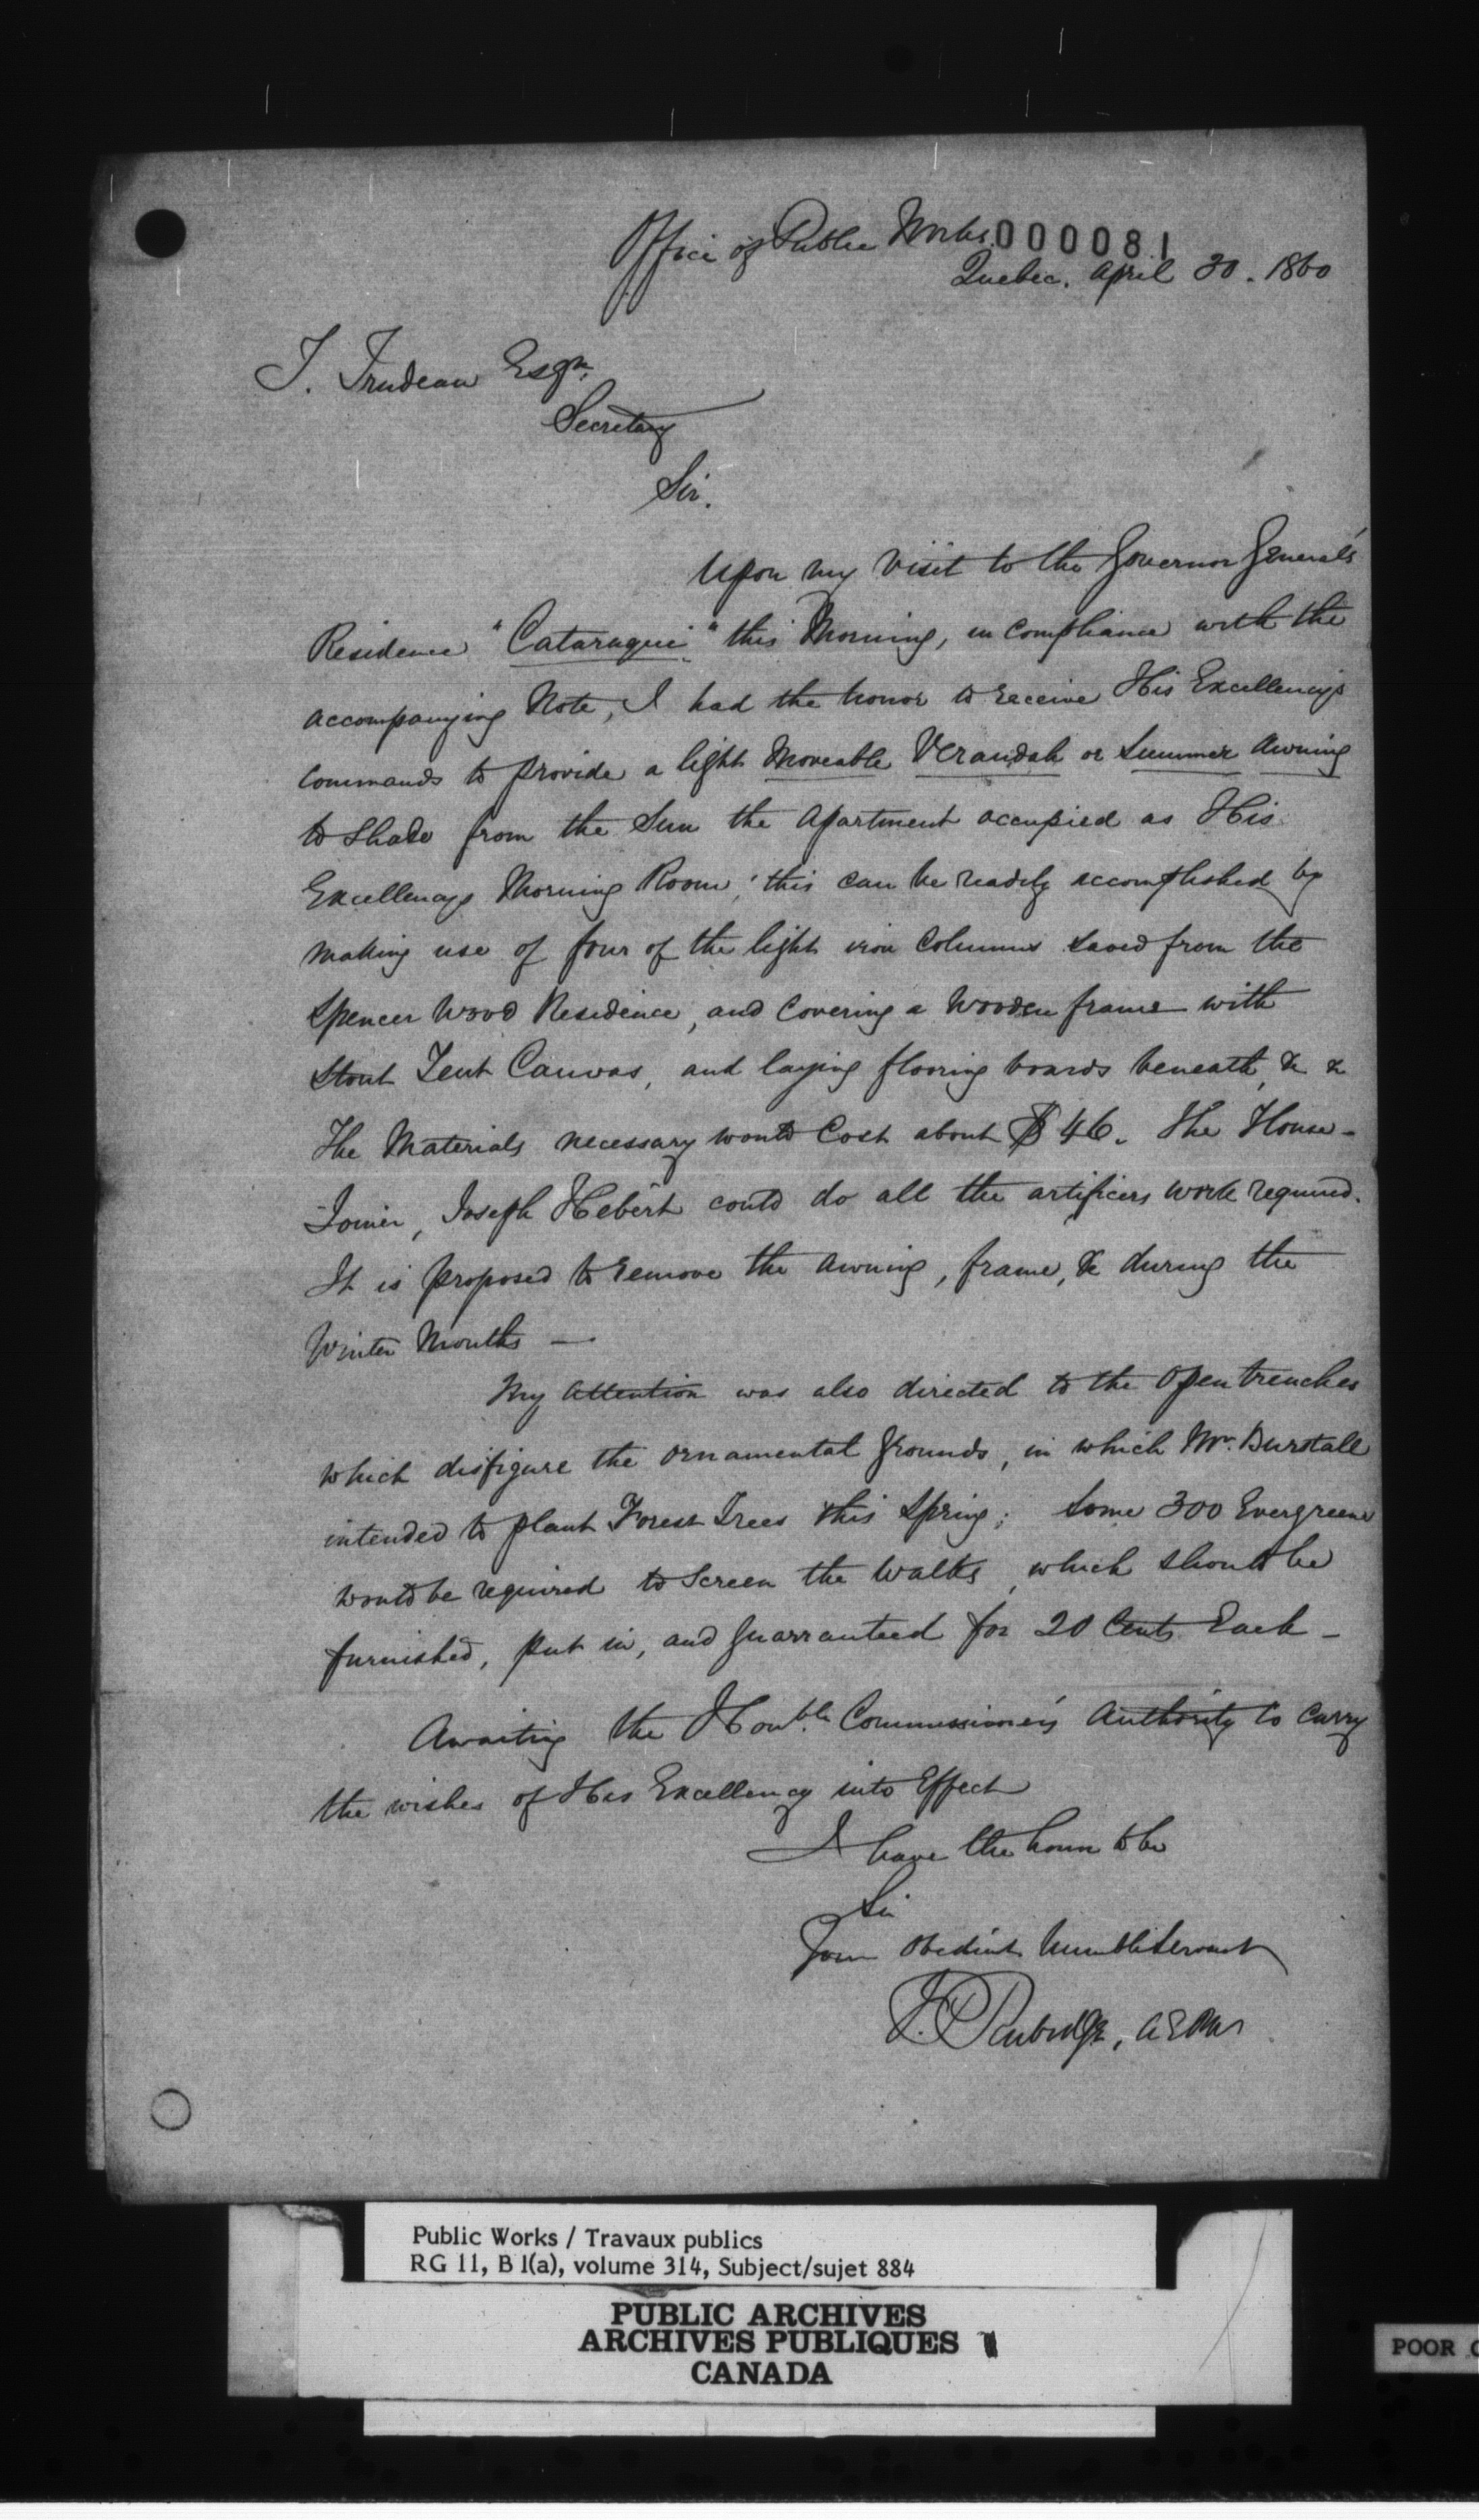 Office of Public Works. 000081
Quebec. April 30. 1860
T. Trudeau Esqr.
Secretary
Sir.
Upon my visit to the Governor General's
Residence "Cataraqui" this Morning, in compliance with the
accompanying Note, I had the honor to receive His Excellency's
commands to provide a light Moveable Verandah or Summer Awning
to shade from the Sun the Apartment occupied as His
Excellencys Morning Room; this can be readily accomplished by
making use of four of the light iron Columns saved from the
Spencer Wood Residence, and covering a Wooden frame with
Stout Tent Canvas, and laying flooring boards beneath, &c &c
The Materials necessary would Cost about $46. The House-
Joiner, Joseph Hebert could do all the artificers work required.
It is proposed to remove the awning, frame, &c during the
Winter Months —
My attention was also directed to the open trenches
which disfigure the ornamental Grounds, in which Mr. Burstall
intended to plant Forest Trees this Spring; some 300 Evergreens
would be required to Screen the Walks, which should be
furnished, put in, and guarranteed for 20 Cents Each —
Awaiting the Honble Commissioner's Authority to carry
the wishes of His Excellency into Effect
I have the honor to be
Sir
Your Obedient Humble Servant
F. P. Rubidge, A E P W
Public Works / Travaux publics
RG 11, B 1(a), volume 314, Subject/sujet 884
PUBLIC ARCHIVES
ARCHIVES PUBLIQUES
CANADA
POOR